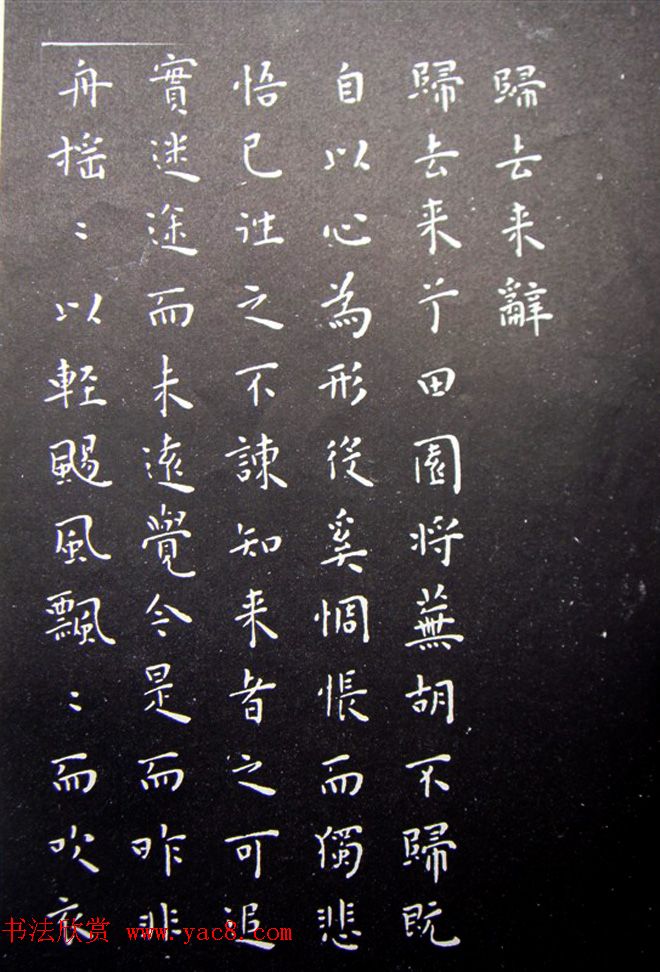 歸去来辭
歸去来兮田園将蕪胡不歸既
自以心為形役奚惆悵而獨悲
悟已往之不諫知来者之可追
實迷途而未遠覺今是而昨非
舟摇〻以輕颺風飄〻而吹衣
书法欣赏 www.yac8.com